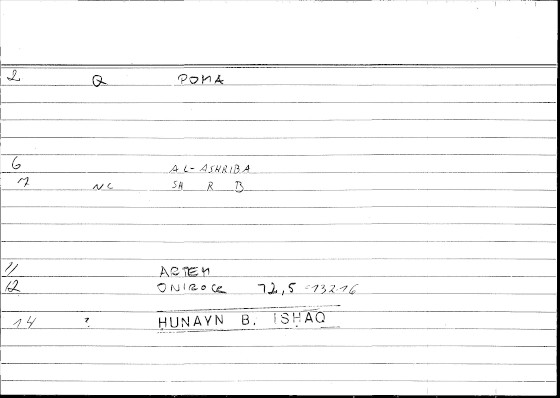 2 Q POMA
6 AL-ASHRIBA
7 NC SH R B
11 ARTEM
12 ONIROCR 72,5 = 132.16
14 ? HUNAYN B. ISHAQ